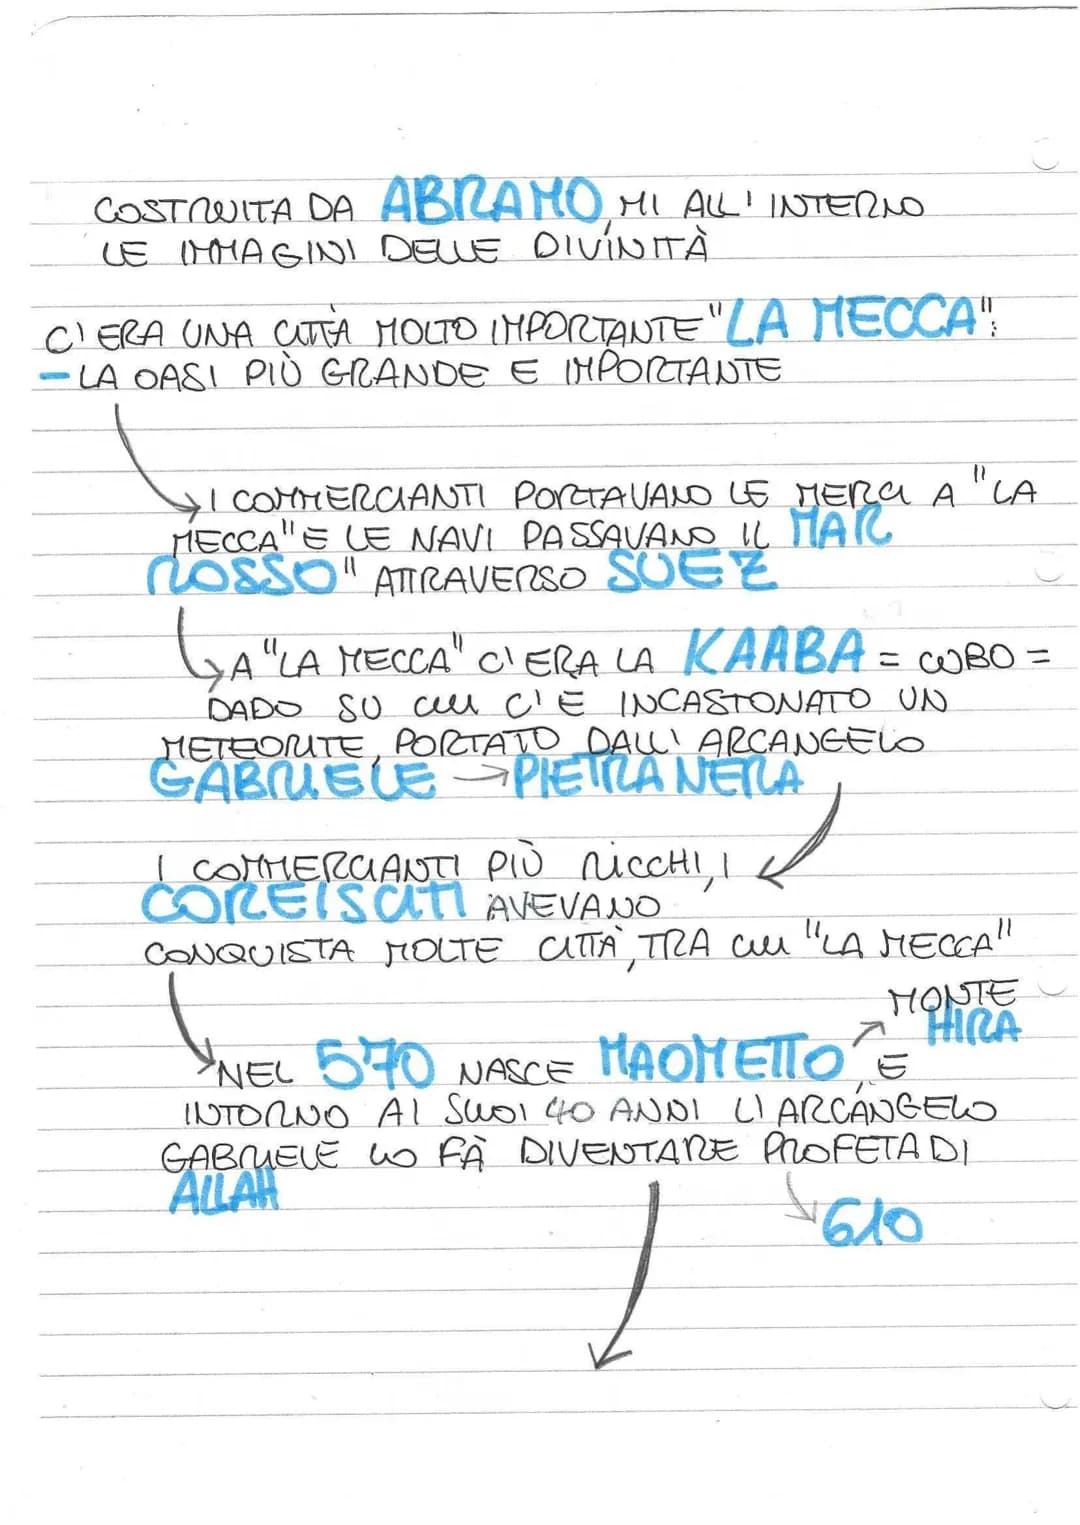 COSTRUITA DA ABRAMO, MI ALL' INTERNO
LE IMMAGINI DELLE DIVINITÀ
C'ERA UNA CITTÀ MOLTO IMPORTANTE "LA MECCA":
- LA OASI PIÙ GRANDE E IMPORTANTE
→ I COMMERCIANTI PORTAVANO LE MERCI A "LA
MECCA" E LE NAVI PASSAVANO IL MAR
ROSSO" ATTRAVERSO SUEZ
→ A "LA MECCA" C'ERA LA KAABA = CUBO =
DADO SU CUI C'È INCASTONATO UN
METEORITE, PORTATO DALL' ARCANGELO
GABRIELE → PIETRA NERA
I COMMERCIANTI PIÙ RICCHI, I
COREISCITI AVEVANO
CONQUISTA MOLTE CITTÀ, TRA CUI "LA MECCA"
MONTE
HIRA
→ NEL 570 NASCE MAOMETTO, E
INTORNO AI SUOI 40 ANNI L'ARCANGELO
GABRIELE LO FÀ DIVENTARE PROFETA DI
ALLAH
→ 610